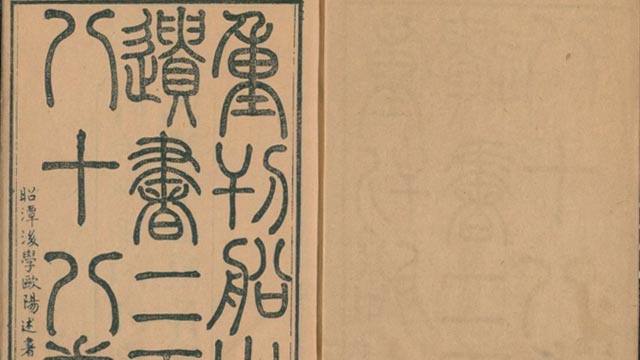 重刊船山
遺書二百
八十八卷
昭潭後學歐陽述署